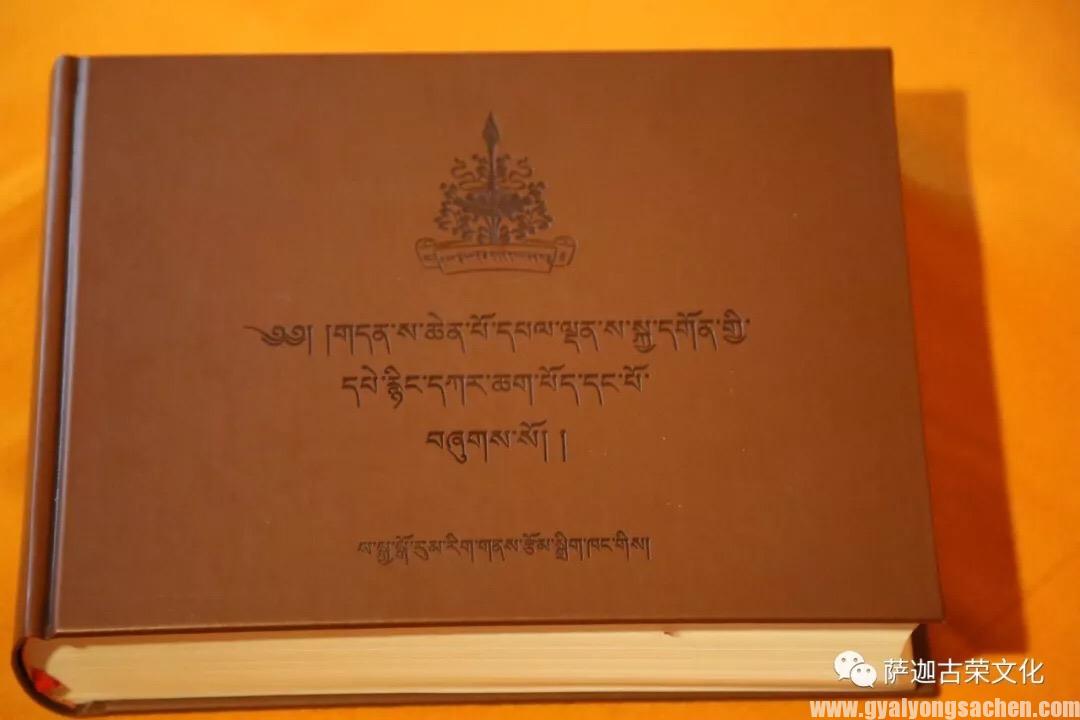 ༄༅། །གདན་ས་ཆེན་པོ་དཔལ་ལྡན་ས་སྐྱ་དགོན་གྱི་
དཔེ་རྙིང་དཀར་ཆག་པོད་དང་པོ་
བཞུགས་སོ། །
ས་སྐྱ་སྒོ་རུམ་རིག་གནས་རྩོམ་སྒྲིག་ཁང་གིས།
萨迦古荣文化
www.gyalyongsachen.com